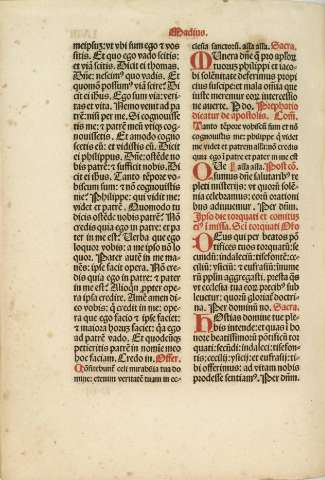 Madius.
meipsuȝ: vt vbi sum ego ⁊ vos
sitis. Et quo ego vado scitis:
et viā scitis. Dicit ei thomas.
Dñe: nescim⁹ quo vadis. Et
quomō possum⁹ viā scire? Di
cit ei ihus. Ego sum via: veri
tas et vita. Nemo venit ad pa
trē: nisi per me. Si cognouisse
tis me: ⁊ patrē meū vtiqȝ cog-
nouissetis. Et amodo cogno
scetis eū: et vidistis eū. Dicit
ei philippus. Dñe: ostēde no
bis patrē: ⁊ sufficit nobis. Di
cit ei ihus. Tanto tēpore vo-
biscum sum: ⁊ nō cognouistis
me: Philippe: qui videt me:
videt et patrē. Quomodo tu
dicis ostēde: nobis patrē? Nō
credis quia ego in patre: et pa
ter in me est? Verba que ego
loquor vobis: a me ipso nō lo
quor. Pater autē in me ma-
nēs: ipse facit opera. Nō cre-
ditis quia ego in patre: ⁊ pater
in me est? Alioqn ꝓpter opera
ipsa credite. Amē amen di-
co vobis: q̄ credit in me: ope-
ra que ego facio ⁊ ip̄e faciet:
⁊ maiora horuȝ faciet: q̄a ego
ad patrē vado. Et quodcūqȝ
petieritis patrē in nomīe meo
hoc faciam. Credo in. Offer.
Cōfitebunt̄ celi mirabilia tua do
mine: etenim veritatē tuam in ec-
clesia sanctorū. alla alla. Sacra.
Munera dn̄e que ꝓ apo
stoloruȝ philippi et iaco
bi solēnitate deferimus propi
cius suscipe: et mala omīa que
iuste meremur eorū intercessio
ne auerte. P do. Prephatio
dicatur de apostolis. Cōm.
Tanto tēpore vobiscū sum et nō
cognouistis me: philippe q̄ videt
me videt et patrem alla: nō credis
quia ego ī patre et pater in me est
Que. alla alla. Post cō.
sumus dn̄e salutarib⁹ re
pleti misteriis: vt quorū solē-
nia celebramus: eorū orationi
bus adiuuemur. Per dn̄m.
Ipso die torquati et comitū
ei⁹ ī missa. Sci torquati Ofo
Deus qui per beatos pō-
tifices tuos torquatū: se
cundū: indaleciū: tisefontē: ce-
ciliū: ysiciū: ⁊ eufrasiū: in
nū
populum aggregasti. presta qs
vt ecclesia tua eorū precib⁹ sub
leuetur: quorū gloriat̄ doctri
na. Per dominū no. Sacra.
Hostias domine tue ple-
bis intende: et quas ī ho
nore beatissimorū pōtificū tor
quati: secūdi: indaleci: tisefon-
tis: cecilij: ysicij: et eufrasij: ti-
bi offerimus: ad vitam nobis
prodesse sentiam⁹. Per dn̄m.